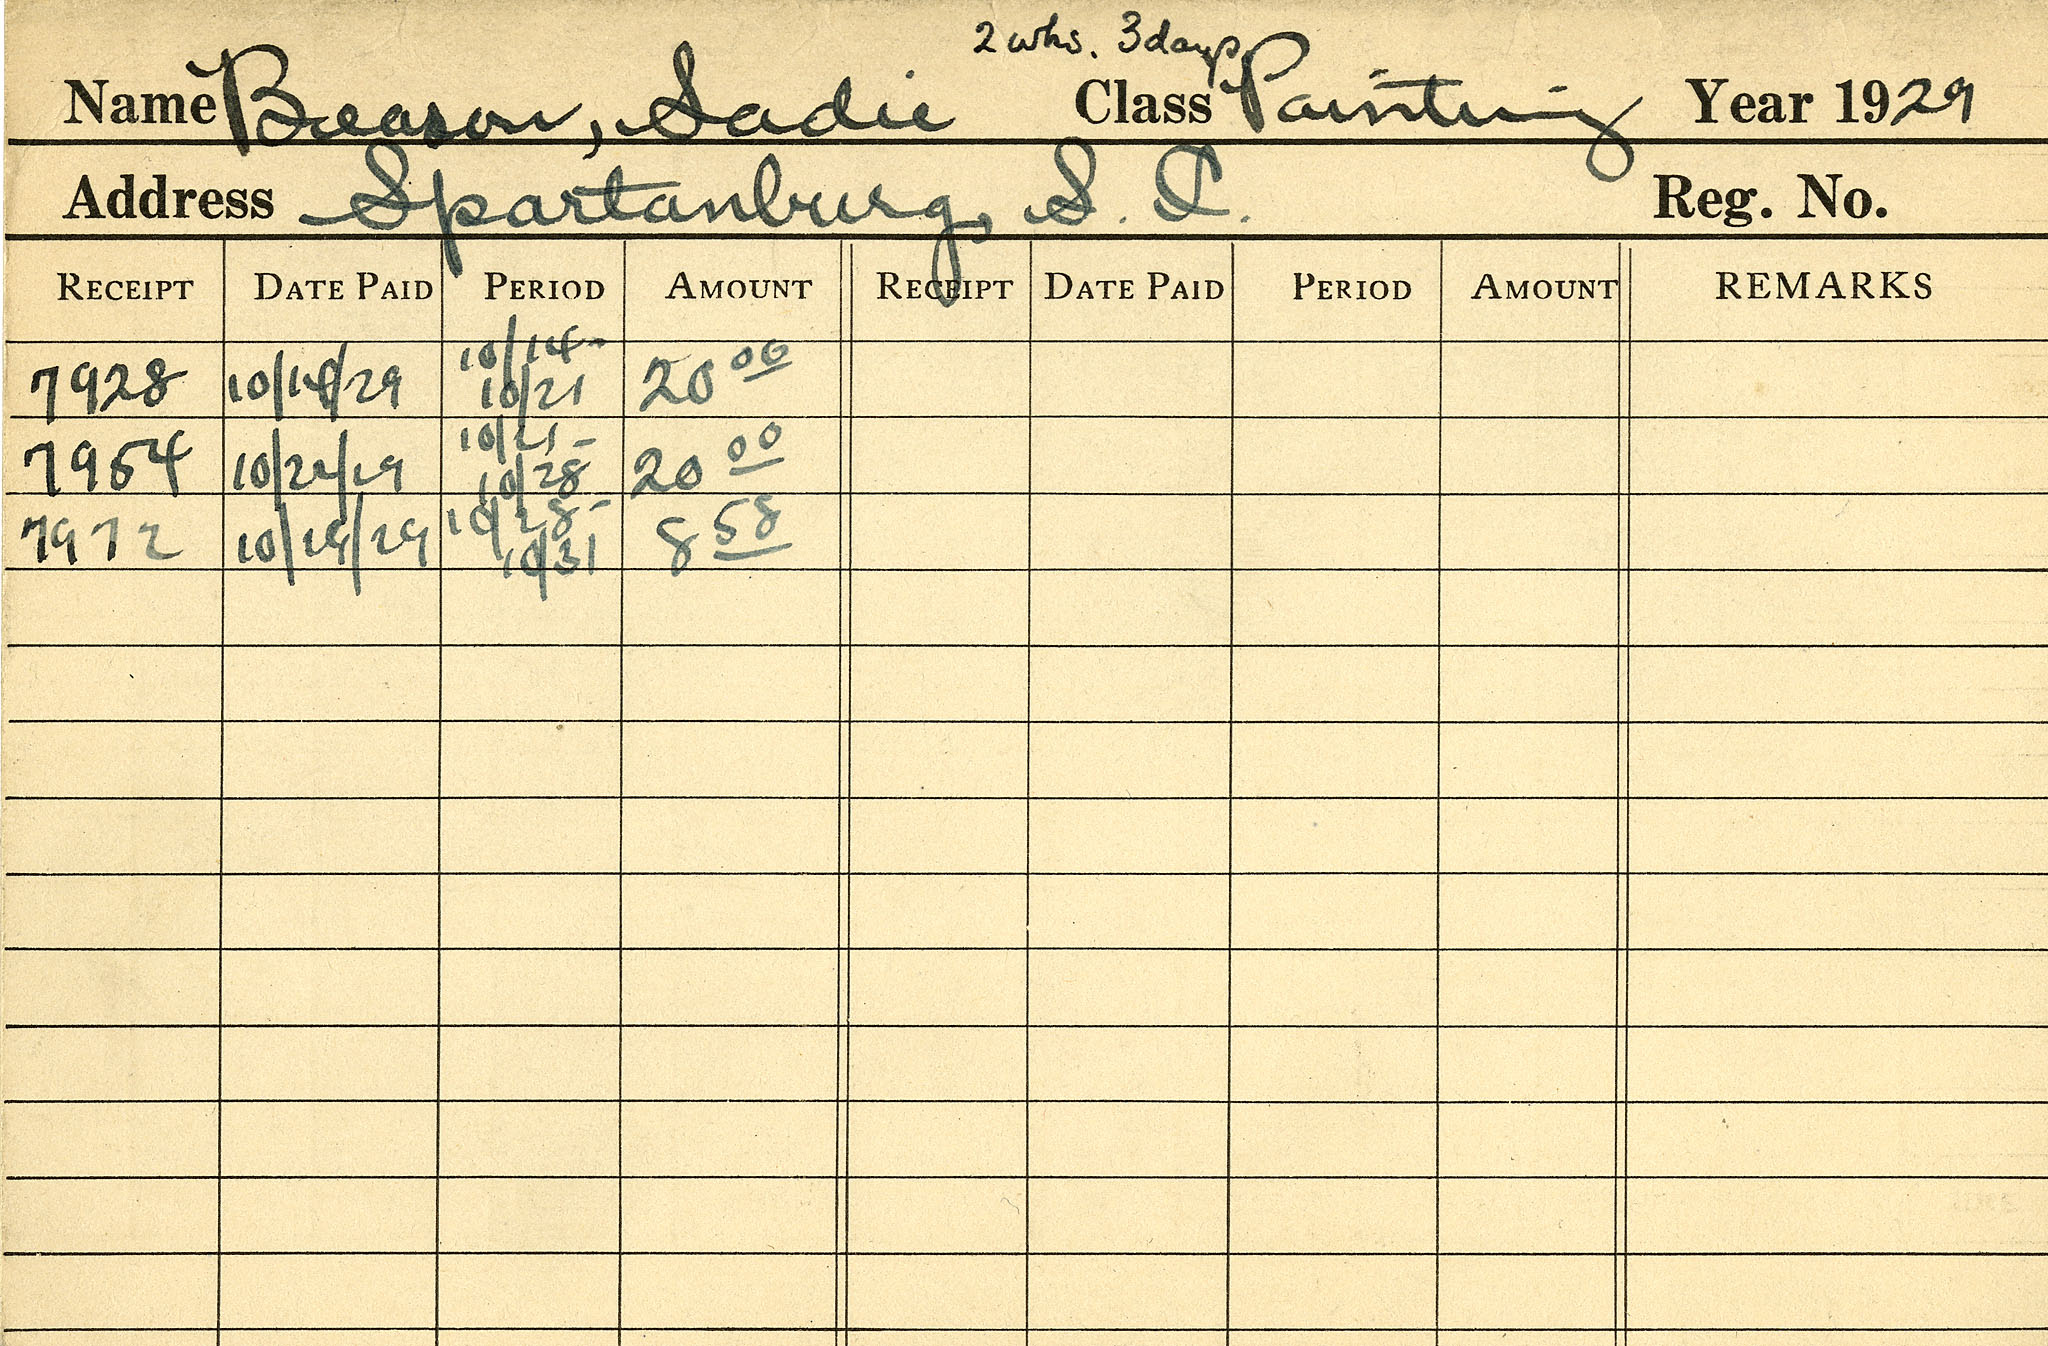 2 wks. 3 days
Name Beason, Sadie Class Painting Year 1929
Address Spartanburg, S. C. Reg. No.
RECEIPT DATE PAID PERIOD AMOUNT RECEIPT DATE PAID PERIOD AMOUNT REMARKS
7928 10/14/29 10/14- 10/21 20 00
7954 10/21/29 10/21- 10/28 20 00
7972 10/29/29 10/28- 10/31 8 58